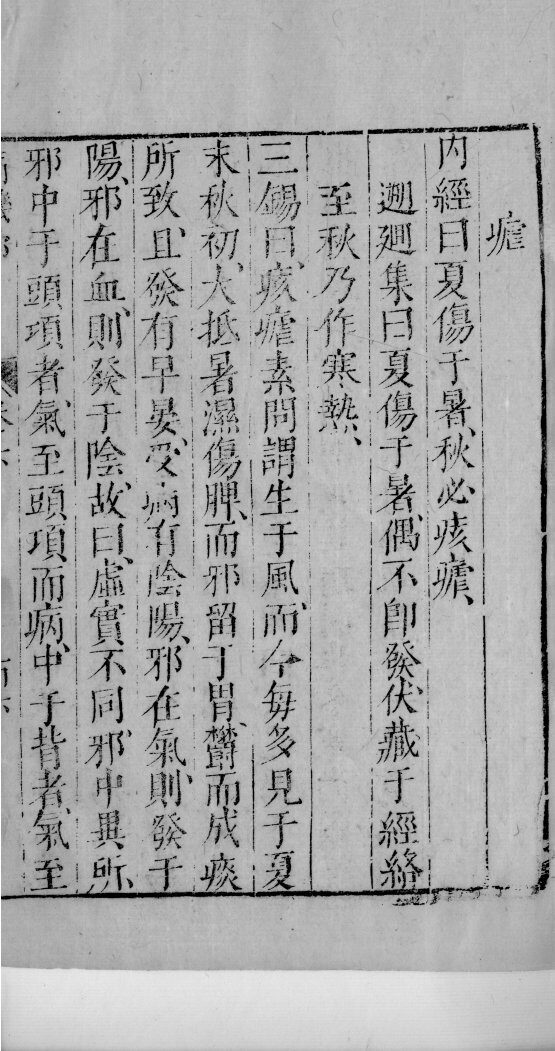 瘧
内經曰夏傷于暑、秋必痎瘧、
遡𢌞集曰夏傷于暑、偶不卽發、伏藏于經絡
至秋乃作寒熱、
三錫曰、痎瘧素問謂生于風、而今每多見于夏
末秋初、大抵暑濕傷脾、而邪留于胃、欝而成痰
所致、且發有早晏、受病有陰陽、邪在氣、則發于
陽、邪在血、則發于陰、故曰、虛實不同、邪中異所、
邪中于頭項者、氣至頭項而病、中于背者、氣至